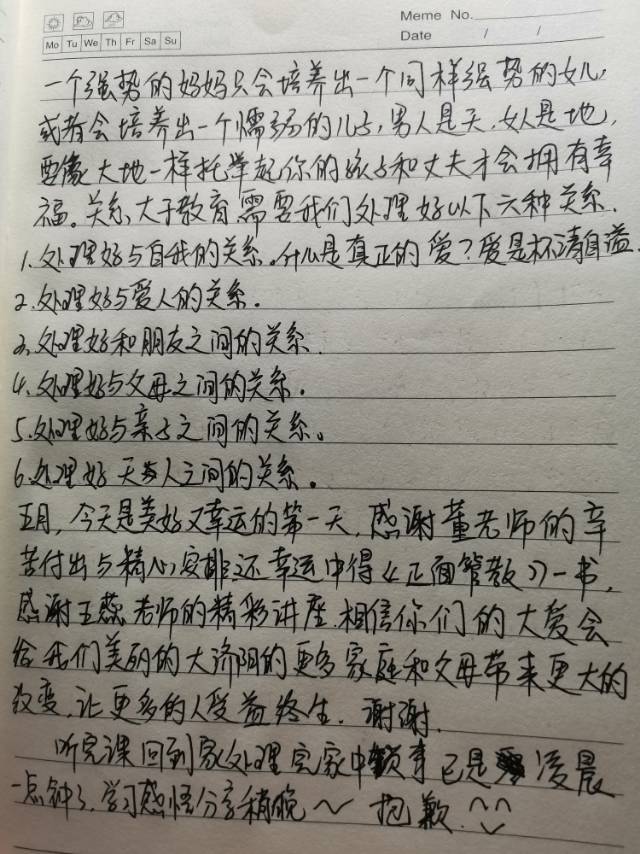 Meme No.
Mo Tu We Th Fr Sa Su
Date / /
一个强势的妈妈只会培养出一个同样强势的女儿,
或者会培养出一个懦弱的儿子,男人是天,女人是地,
要像大地一样托举起你的孩子和丈夫才会拥有幸
福。关系大于教育,需要我们处理好以下六种关系.
1.处理好与自我的关系。什么是真正的爱?爱是杯满自溢.
2.处理好与爱人的关系。
3.处理好和朋友之间的关系.
4.处理好与父母之间的关系.
5.处理好与亲子之间的关系。
6.处理好天与人之间的关系。
五月,今天是美好又幸运的第一天,感谢董老师的辛
苦付出与精心安排还幸运中得《正面管教》一书,
感谢王蕊老师的精彩讲座.相信你们的大爱会
给我们美丽的大济阳的更多家庭和父母带来更大的
改变,让更多的人受益终生.谢谢.
听完课回到家处理完家中琐事已是凌晨
一点钟了.学习感悟分享稍晚~抱歉.